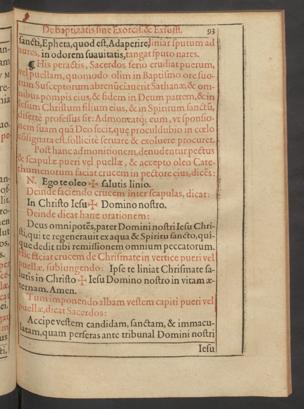 De Baptizatis sine Exorcis. & Exsuff. 93
sancti, Epheta, quod est, Adaperire, liniar sputum ad
nares. in odorem suauitatis, tangat sputo nares.
His peractis, Sacerdos serio erudiat puerum,
vel puellam, quomodo olim in Baptismo ore suo-
rum Susceptorum abrenunciauerit Sathanæ, & om-
nibus pompis eius, & fidem in Deum patrem, & in
Iesum Christum filium eius, & in Spiritum sanctũ,
disertè professus sit: Admonẽatq; eum, vt sponsio-
nem suam quã Deo fecit, quę proculdubio in cœlo
consignata est, sollicitè seruare & exoluere procuret.
Post hanc admonitionem, denudentur pectus
& scapulæ pueri vel puellæ, & accepto oleo Cate-
chumenorum faciat crucem in pectore eius, dicẽs:
N. Ego te oleo ✠ salutis linio.
Deinde faciendo crucem inter scapulas, dicat:
In Christo Iesu ✠ Domino nostro.
Deinde dicat hanc orationem:
Deus omnipotẽs, pater Domini nostri Iesu Chri-
sti, qui te regenerauit ex aqua & Spiritu sancto, qui-
que dedit tibi remissionem omnium peccatorum.
Hic faciat crucem de Chrismate in vertice pueri vel
puellæ, subiungendo: Ipse te liniat Chrismate sa-
lutis in Christo ✠ Iesu Domino nostro in vitam æ-
ternam. Amen.
Tum imponendo albam vestem capiti pueri vel
puellæ, dicat Sacerdos:
Accipe vestem candidam, sanctam, & immacu-
latam, quam perferas ante tribunal Domini nostri
Iesu